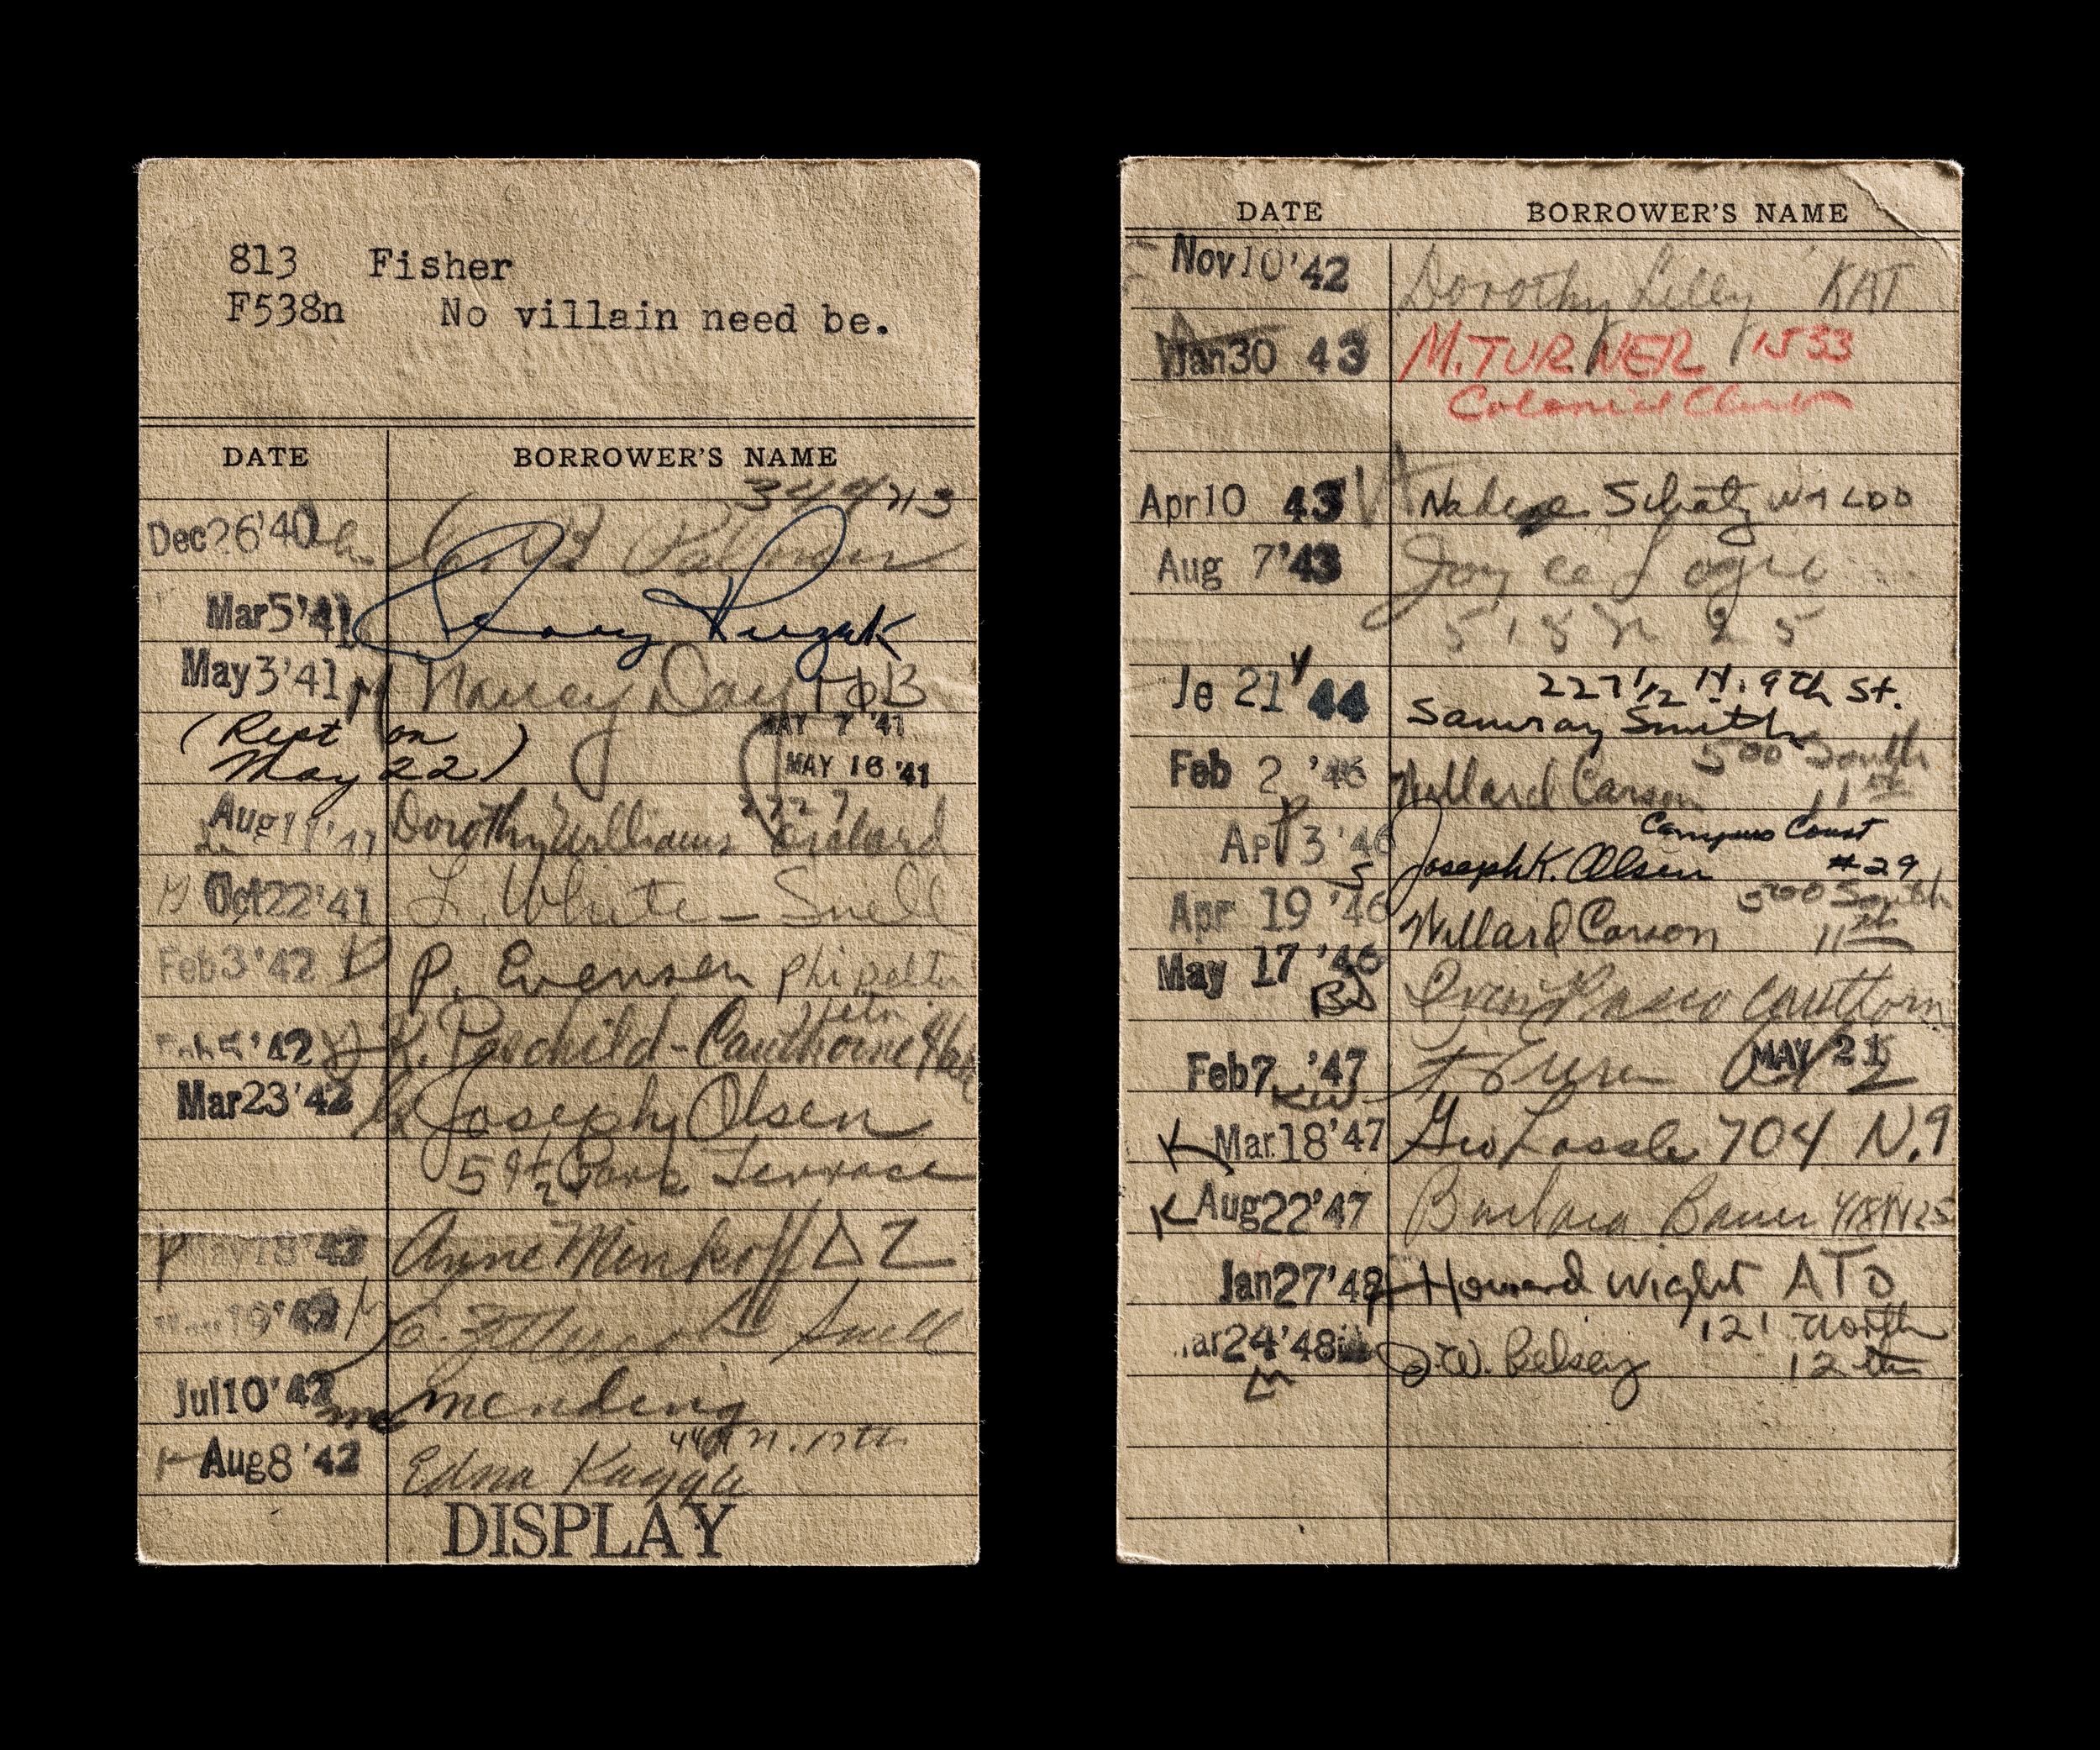 813 Fisher
F538n No villain need be.
DATE BORROWER'S NAME
Dec 26 '40 Palmer
Mar 5 '41
May 3 '41 Nancy Day ΓΦΒ
(Rept on MAY 7 '41
May 22) MAY 16 '41
Aug 11 '41 Dorothy Williams
Oct 22 '41 L. White - Snell
Feb 3 '42 P. Evensen Phi Delta
Theta
'42 K. Paschild - Cauthorne Hall
Mar 23 '42 Joseph Olsen
Park Terrace
May 18 '42 Anne Minkoff ΔZ
19 '42 Snell
Jul 10 '42 mending
Aug 8 '42 Edna Kagga
DISPLAY
DATE BORROWER'S NAME
Nov 10 '42 Dorothy Lilly KAT
Jan 30 43 M. TURNER 1533
Colonial Club
Apr 10 43 Schatz WALDO
Aug 7 '43 Joyce Logie
518 N 25
227 1/2 N. 9th St.
Je 21 44 Samray Smith
500 South
Feb 2 '46 Willard Carson 11th
Campus Court
Ap 3 '46 Joseph K. Olsen #29
500 South
Apr 19 '46 Willard Carson 11th
May 17 '46
MAY 21
Feb 7 '47
KW
K Mar 18 '47 Geo Lassle 704 N. 9
K Aug 22 '47 Barbara Bauer 418 N 25
Jan 27 '48 Howard Wight ATO
121 North
ar 24 '48 J. W. Belsey 12th